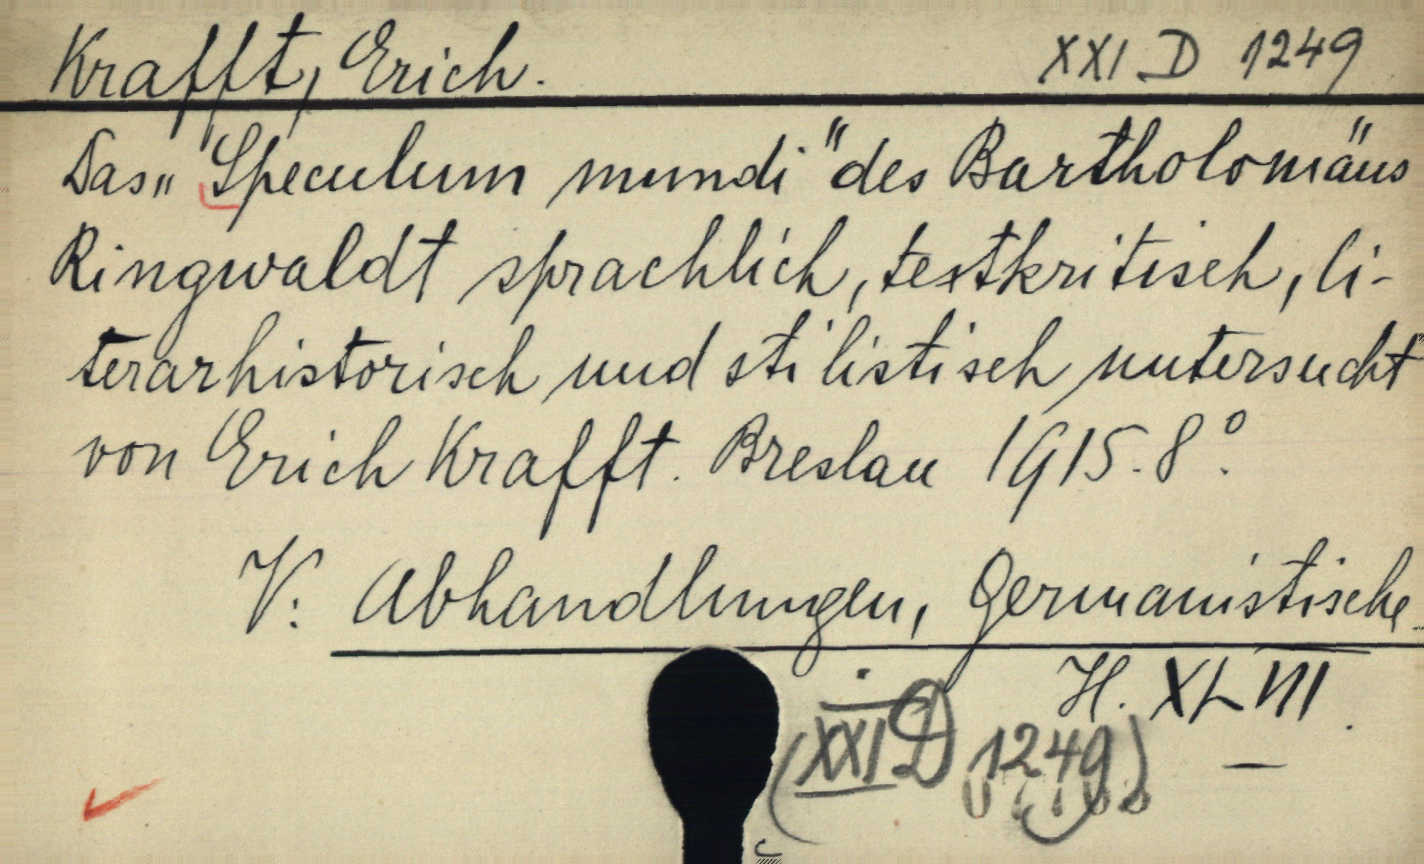 Krafft, Erich. XXI D 1249
Das „Speculum mundi" des Bartholomäus
Ringwaldt sprachlich, textkritisch, li-
terarhistorisch und stilistisch untersucht
von Erich Krafft. Breslau 1915. 8°.
V: Abhandlungen, Germanistische
H. XLVII.
(XXI D 1249)